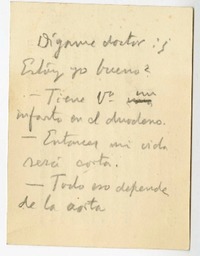 Dígame doctor: ¿
Estóy yo bueno?
— Tiene Vd. un
infarto en el duodeno.
— Entonces mi vida
será corta.
— Todo eso depende
de la costa